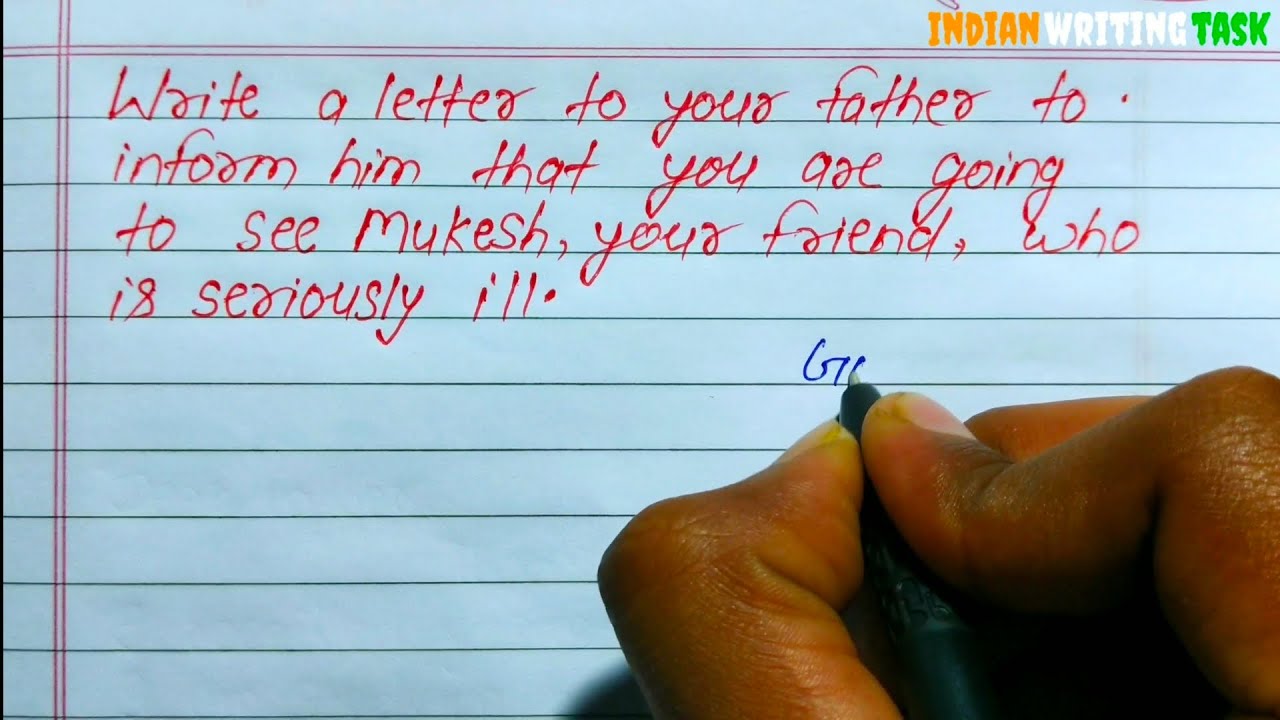 INDIAN WRITING TASK
Write a letter to your father to.
inform him that you are going
to see Mukesh, your friend, who
is seriously ill.